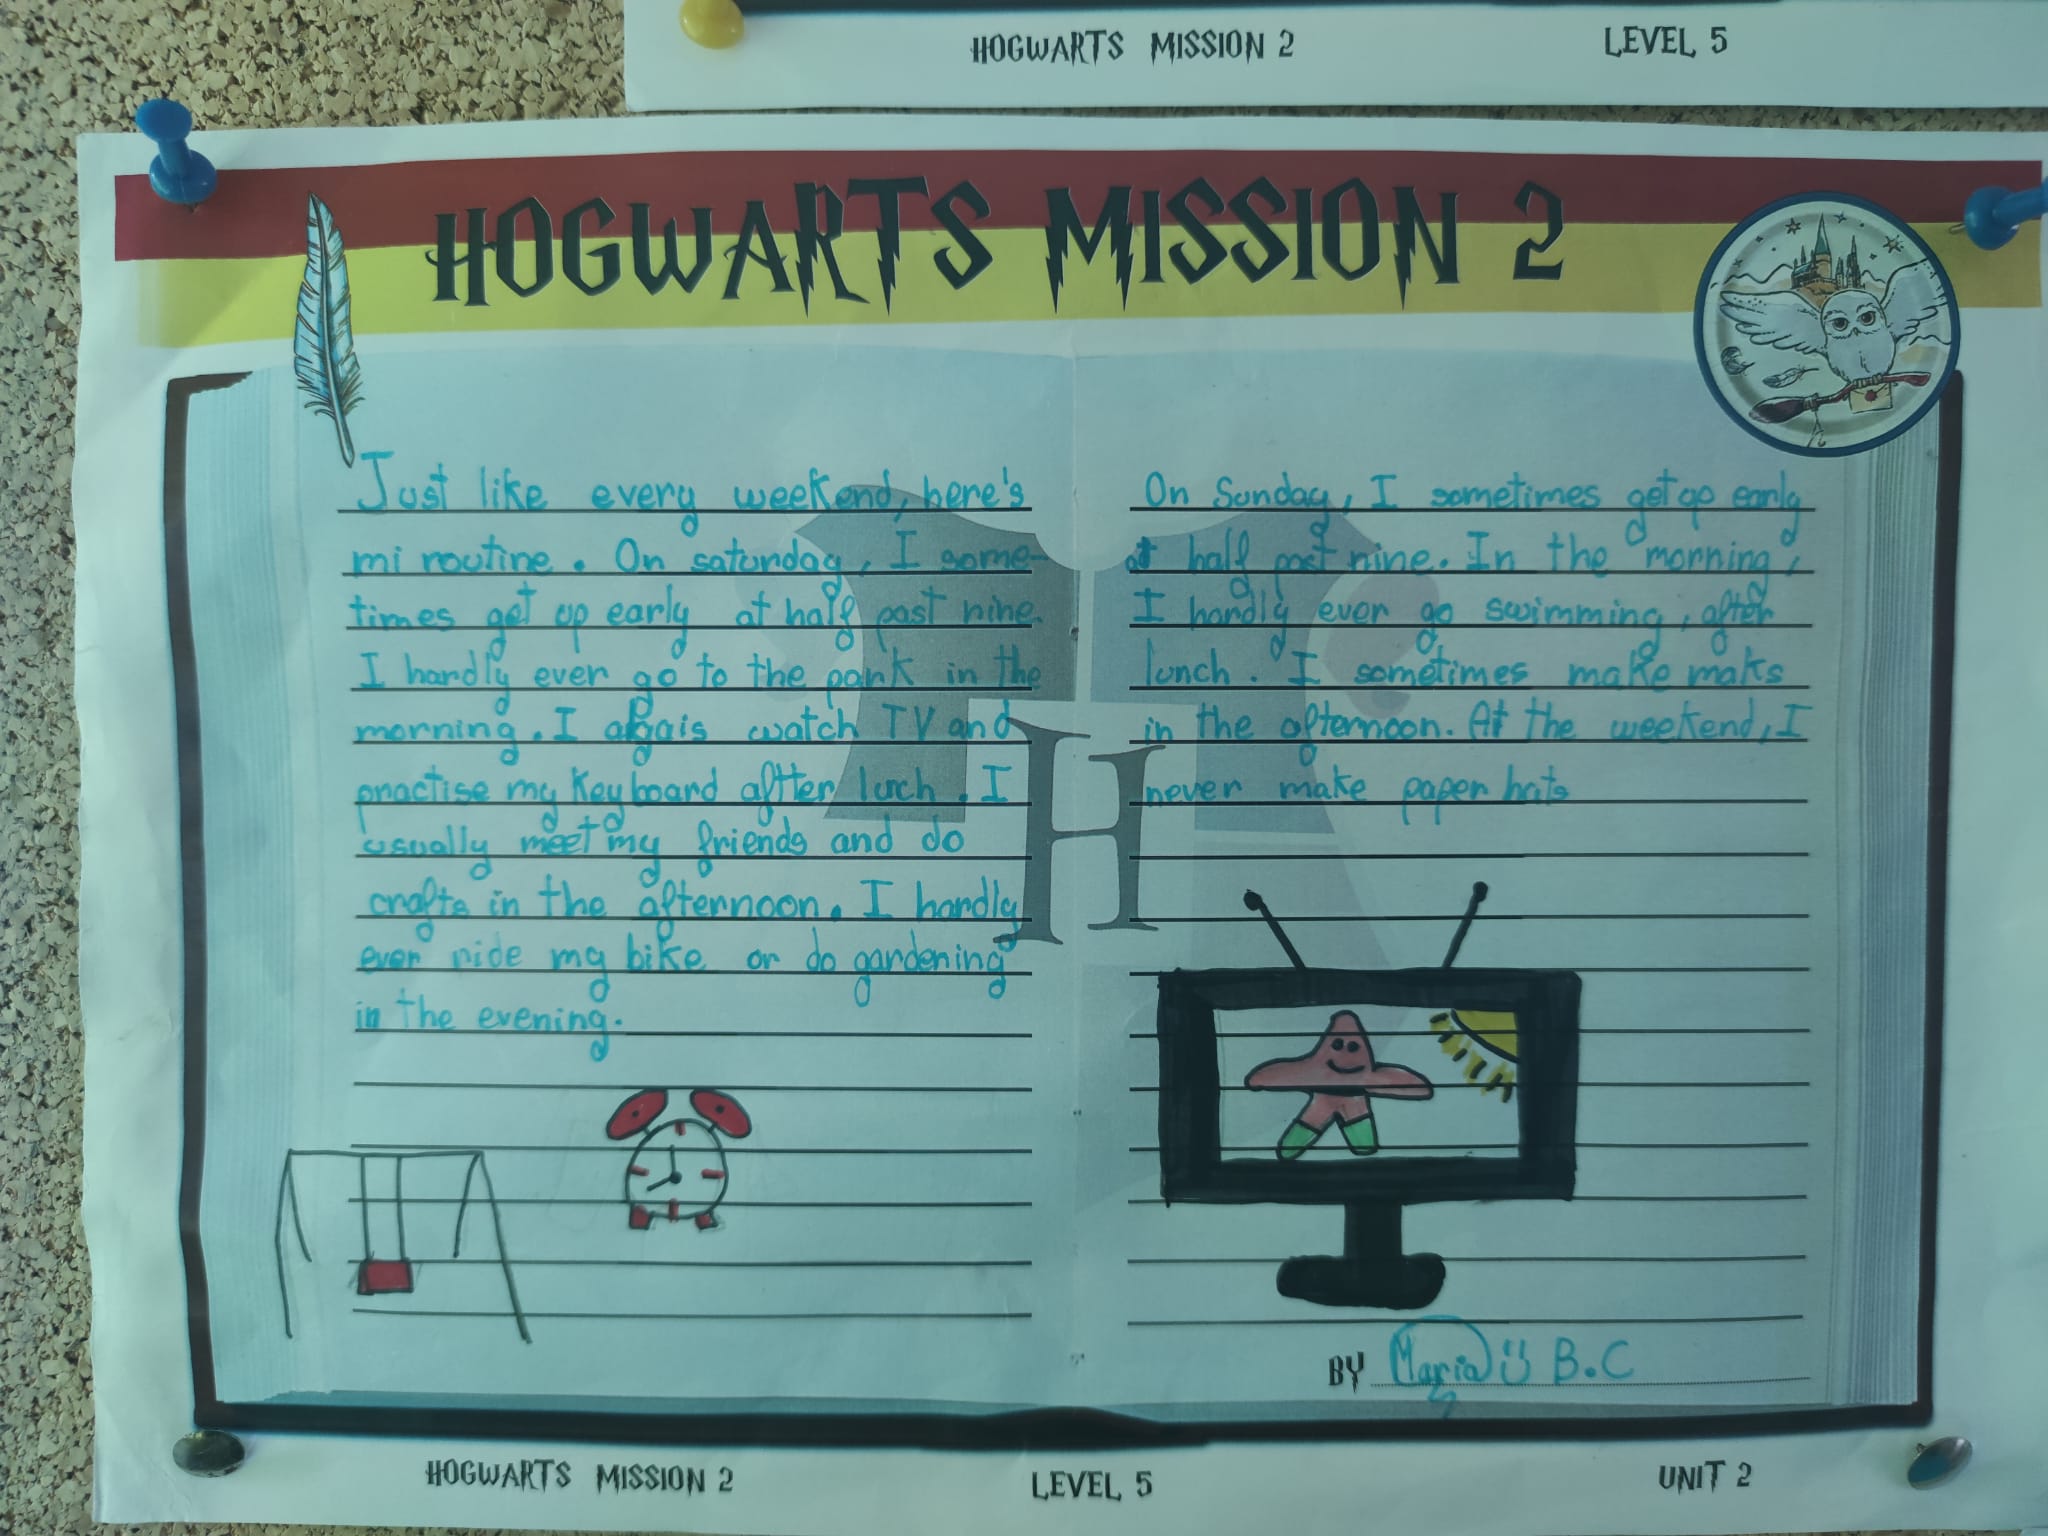 HOGWARTS MISSION 2 LEVEL 5
HOGWARTS MISSION 2
Just like every weekend, here's
mi routine. On saturday, I some-
times get up early at half past nine.
I hardly ever go to the park in the
morning. I watch TV and
practise my keyboard aftter luch. I
usually meet my friends and do
crafts in the afternoon. I hardly
ever ride my bike or do gardening
in the evening.
On Sunday, I sometimes get up early
at half past nine. In the morning,
I hardly ever go swimming, after
lunch. I sometimes make maks
in the afternoon. At the weekend, I
never make paper hats
H
BY Maria B.C
HOGWARTS MISSION 2 LEVEL 5 UNIT 2